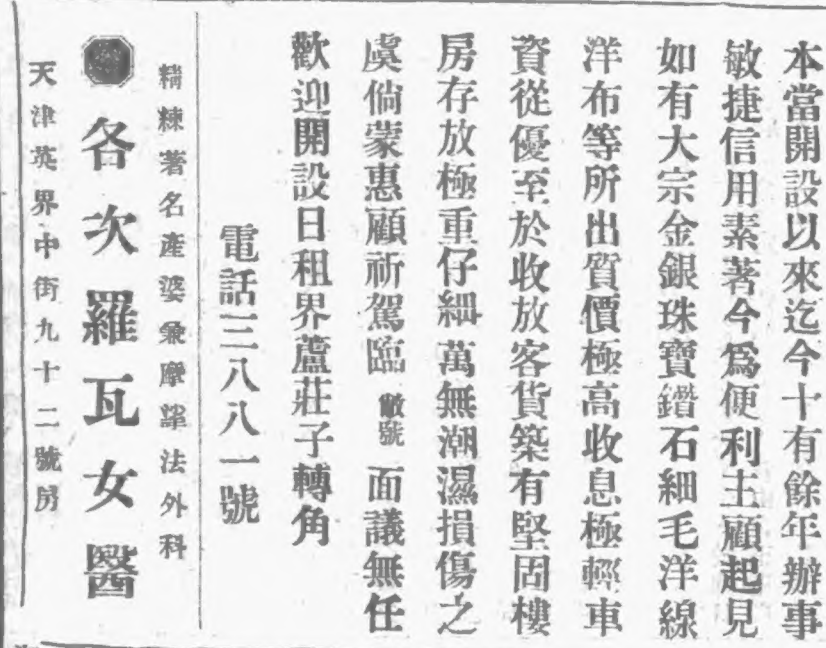 本當開設以來迄今十有餘年辦事
敏捷信用素著今爲便利主顧起見
如有大宗金銀珠寶鑽石細毛洋線
洋布等所出質價極高收息極輕車
資從優至於收放客貨築有堅固樓
房存放極重仔細萬無潮濕損傷之
虞倘蒙惠顧祈駕臨敝號面議無任
歡迎開設日租界蘆莊子轉角
電話三八八一號
精練著名產婆兼摩擇法外科
各次羅瓦女醫
天津英界中街九十二號房